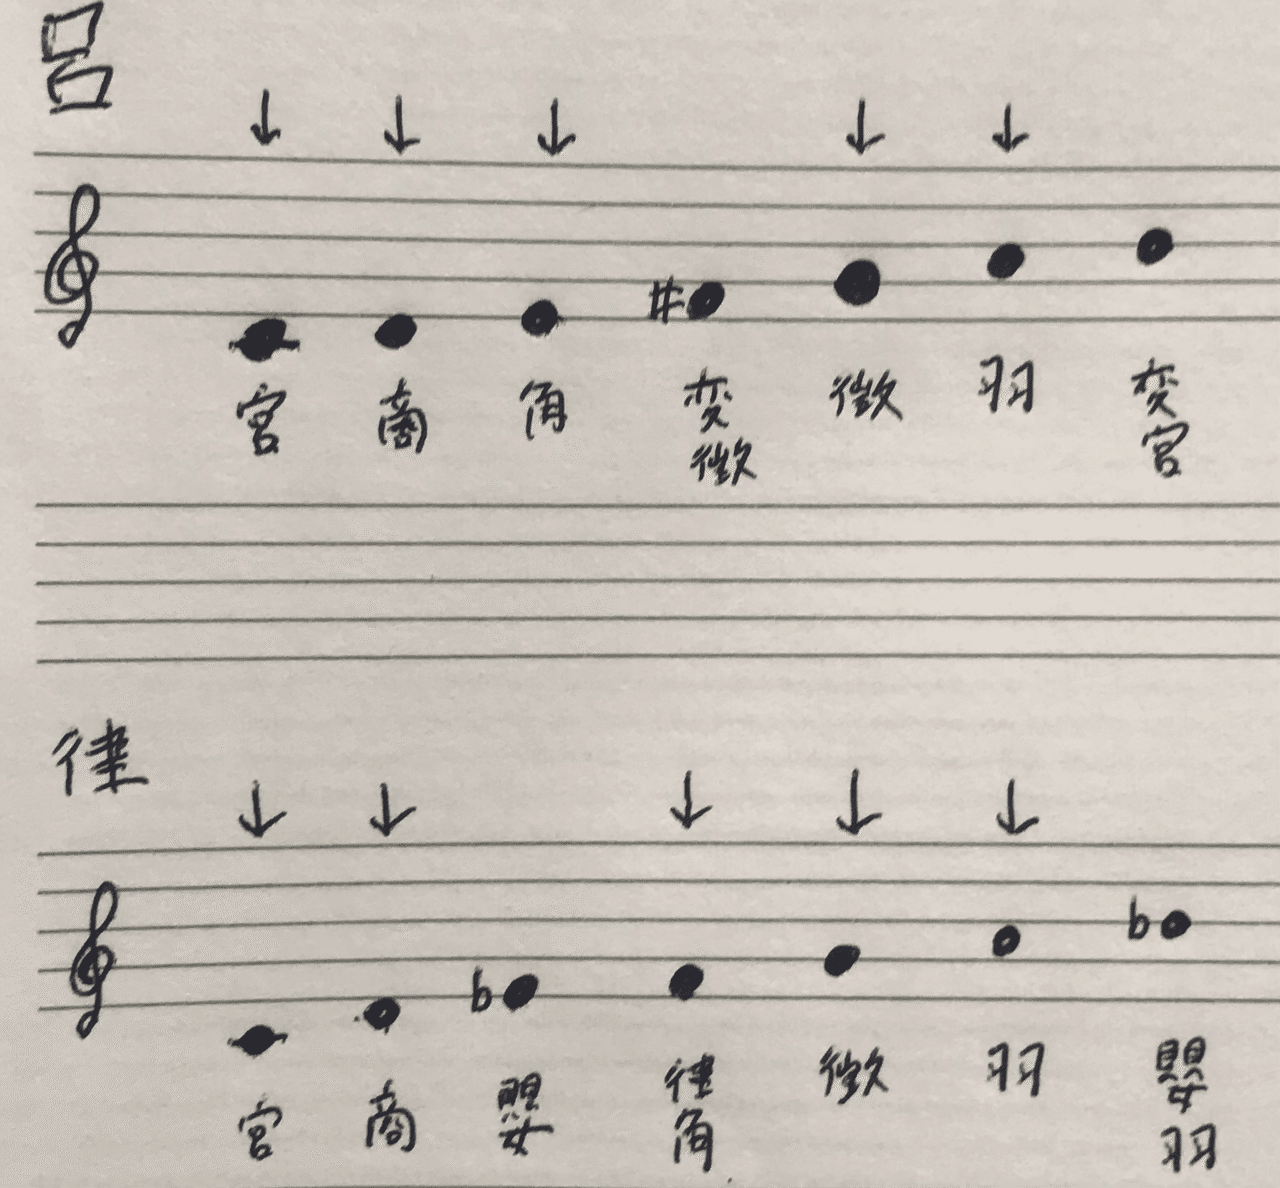 呂
宮 商 角 変徴 徴 羽 変宮
律
宮 商 嬰 律角 徴 羽 嬰羽